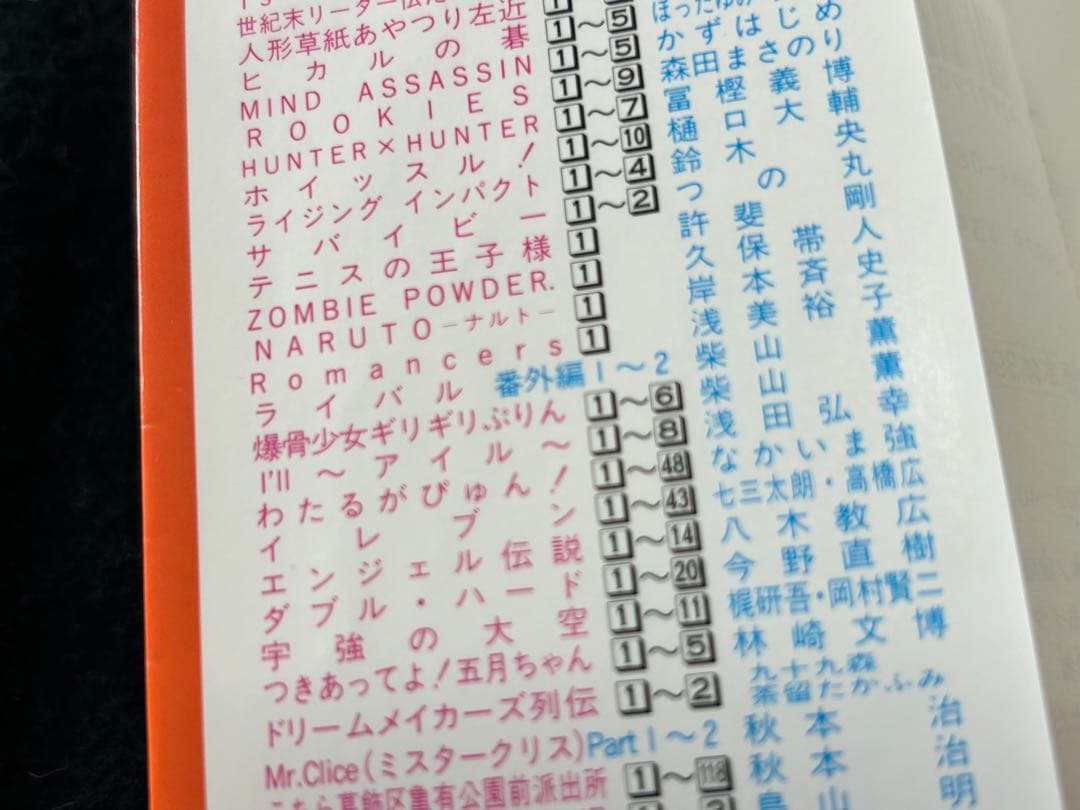 世紀末リーダー伝た
人形草紙あやつり左近 1
ヒカルの碁 1～5 ほったゆみ
MIND ASSASSIN 1～5 かずはじめ
ROOKIES 1～9 森田まさのり
HUNTER×HUNTER 1～7 冨樫義博
ホイッスル! 1～10 樋口大輔
ライジング インパクト 1～4 鈴木央
サバイビー 1～2 つの丸
テニスの王子様 1 許斐剛
ZOMBIE POWDER. 1 久保帯人
NARUTO―ナルト― 1 岸本斉史
Romancers 1 浅美裕子
ライバル 番外編1～2 柴山薫
爆骨少女ギリギリぷりん 1～6 柴山薫
I'll ～アイル～ 1～8 浅田弘幸
わたるがぴゅん! 1～48 なかいま強
イレブン 1～43 七三太朗・高橋広
エンジェル伝説 1～14 八木教広
ダブル・ハード 1～20 今野直樹
宇強の大空 1～11 梶研吾・岡村賢二
つきあってよ!五月ちゃん 1～5 林崎文博
ドリームメイカーズ列伝 1～2 九十九森 茶留たかふみ
Mr.Clice(ミスタークリス) Part1～2 秋本治
こちら葛飾区亀有公園前派出所 1～118 秋本治